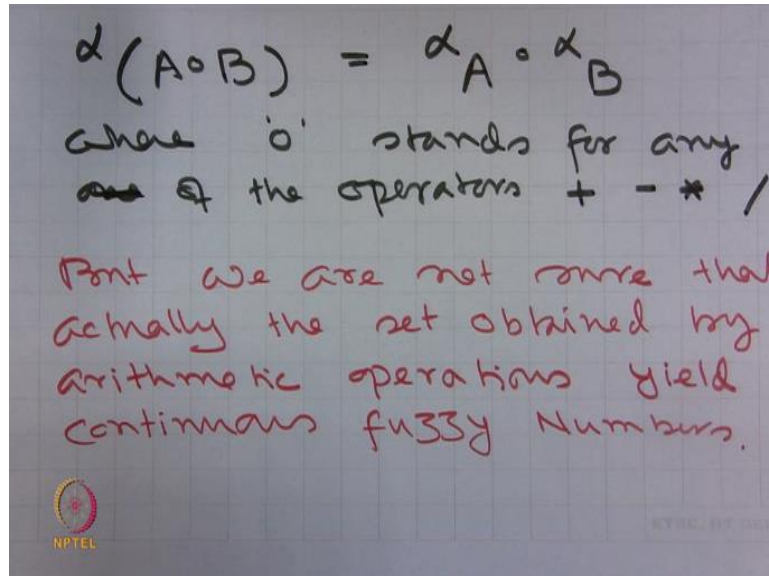 α(A∘B) = αA ∘ αB
where 'o' stands for any
of the operators + - * /
But we are not sure that
actually the set obtained by
arithmetic operations yield
continuous fuzzy Numbers.
NPTEL